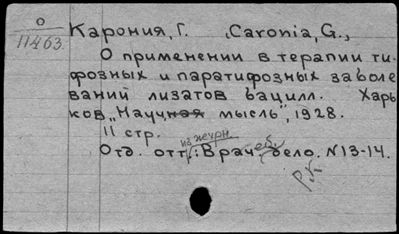 О
11463
Карония, Г. (Caronia, G.,
О применении в терапии ти-
фозных и паратифозных заболе
ваний лизатов бацилл. Харь
ков, "Научная мысль", 1928.
11 стр.
Отд. отт. из журн.: Врачеб. дело. N13-14.